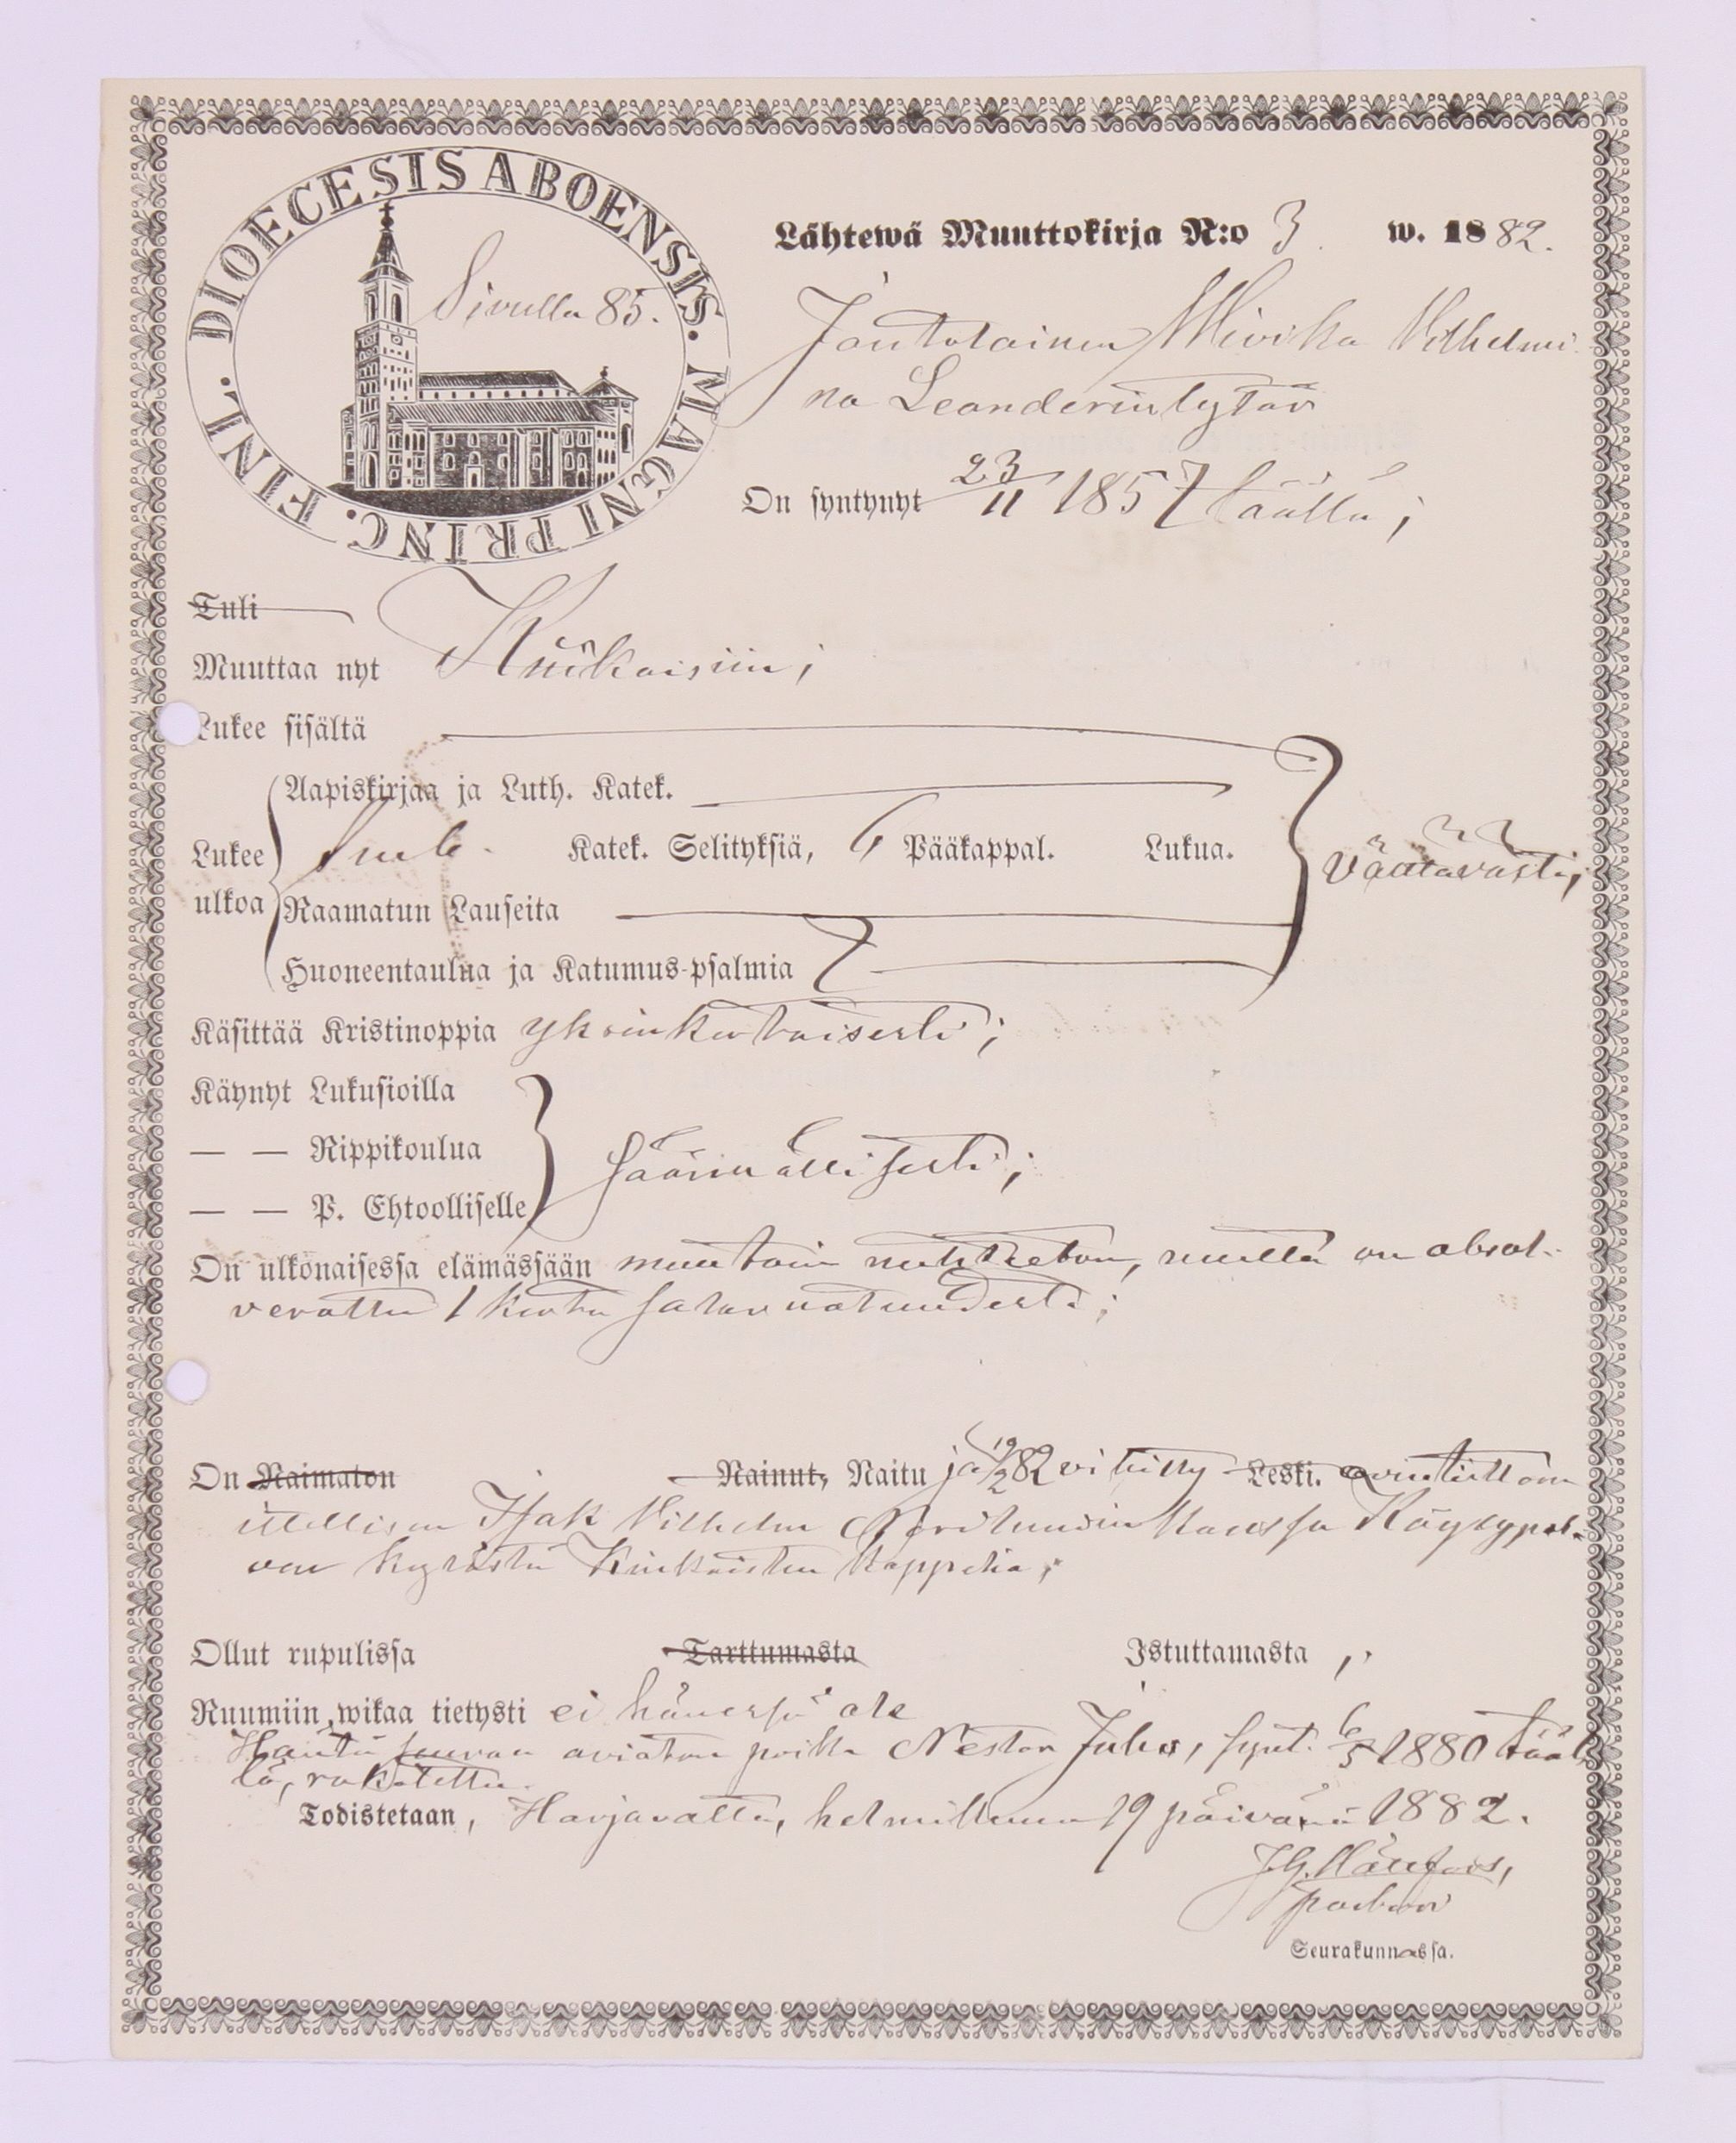 DIOECESIS ABOENSIS. MAGNI PRINC. FINL.
Sivulla 85.
Lähtewä Muuttokirja N:o 3. w. 1882.
Miorika Vilhelmi
na Leanderintytär
On syntynyt 23/11 1857 täällä;
Tuli
Muuttaa nyt Kiukaisiin;
Lukee sisältä
Aapiskirjaa ja Luth. Katek.
Lukee ulkoa
Katek. Selityksiä, 6 Pääkappal. Lukua.
Välttävästi;
Raamatun Lauseita
Huoneentaulua ja Katumus-psalmia 7
Käsittää Kristinoppia yksinkertaisesti;
Käynyt Lukusioilla
— — Rippikoulua
säännöllisesti;
— — P. Ehtoolliselle
On ulkonaisessa elämässään muutoin nuhteeton, mutta on absol-
verattu 1 kerta salavuoteudesta;
On Naimaton Nainut, Naitu ja 19/2 82 vihitty Leski. aviotiettömä
itellisen Isak Vilhelm kanssa Köysypol-
van kylästä Kiukaisten kappelia;
Ollut rupulissa Tarttumasta Istuttamasta,
Ruumiin wikaa tietysti ei hänessä ole
Häntä seuraa avioton poika Nestor Juho, synt. 6/5 1880 tääl
lä, rokotettu.
Todistetaan, Harjavalta, helmikuun 19 päivänä 1882.
pastori
Seurakunnassa.